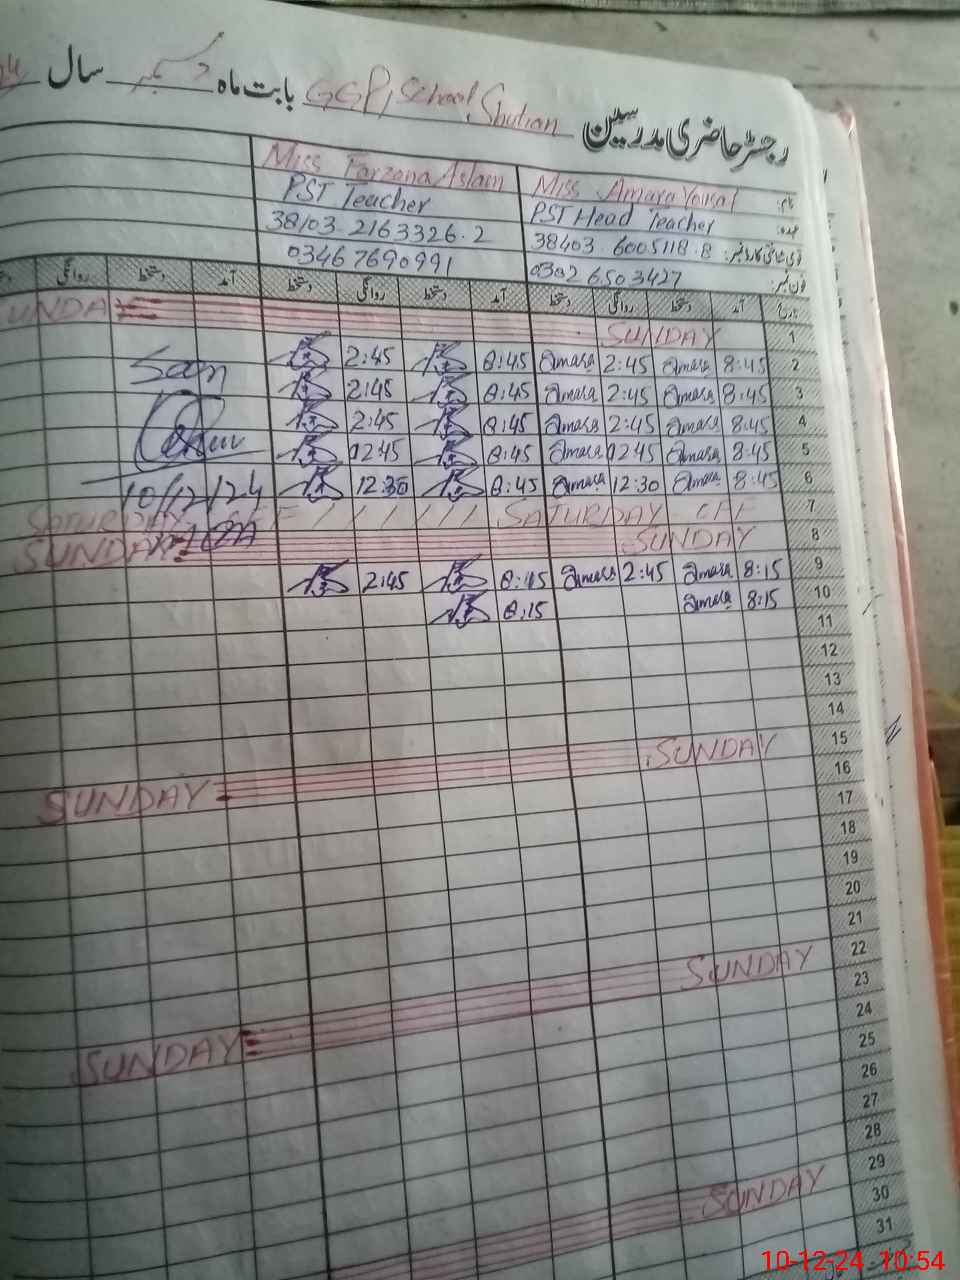 رجسٹر حاضری مدرسین GGP, School, Shulian بابت ماہ دسمبر سال
نام: Miss Amara Yousaf Miss Farzana Aslam
عہدہ: PST Head Teacher PST Teacher
قومی شناختی کارڈ نمبر: 38403 6005118.8 38103 2163326.2
فون نمبر: 0302 6503427 0346 7690991
تاریخ آمد دستخط روانگی دستخط آمد دستخط روانگی دستخط آمد دستخط روانگی
1 SUNDAY SUNDAY
2 8:45 Amara 2:45 Amara 8:45 2:45
3 8:45 Amara 2:45 Amara 8:45 2:45
4 8:45 Amara 2:45 Amara 8:45 2:45
5 8:45 Amara 12:45 Amara 8:45 12:45
6 8:45 Amara 12:30 Amara 8:45 12:30 10/12/24
7 SATURDAY OFF SATURDAY OFF
8 SUNDAY SUNDAY
9 8:15 Amara 2:45 Amara 8:15 2:45
10 8:15 Amara 8:15
11
12
13
14
15 SUNDAY SUNDAY
16
17
18
19
20
21
22 SUNDAY SUNDAY
23
24
25
26
27
28
29 SUNDAY
30
31
10-12-24 10:54